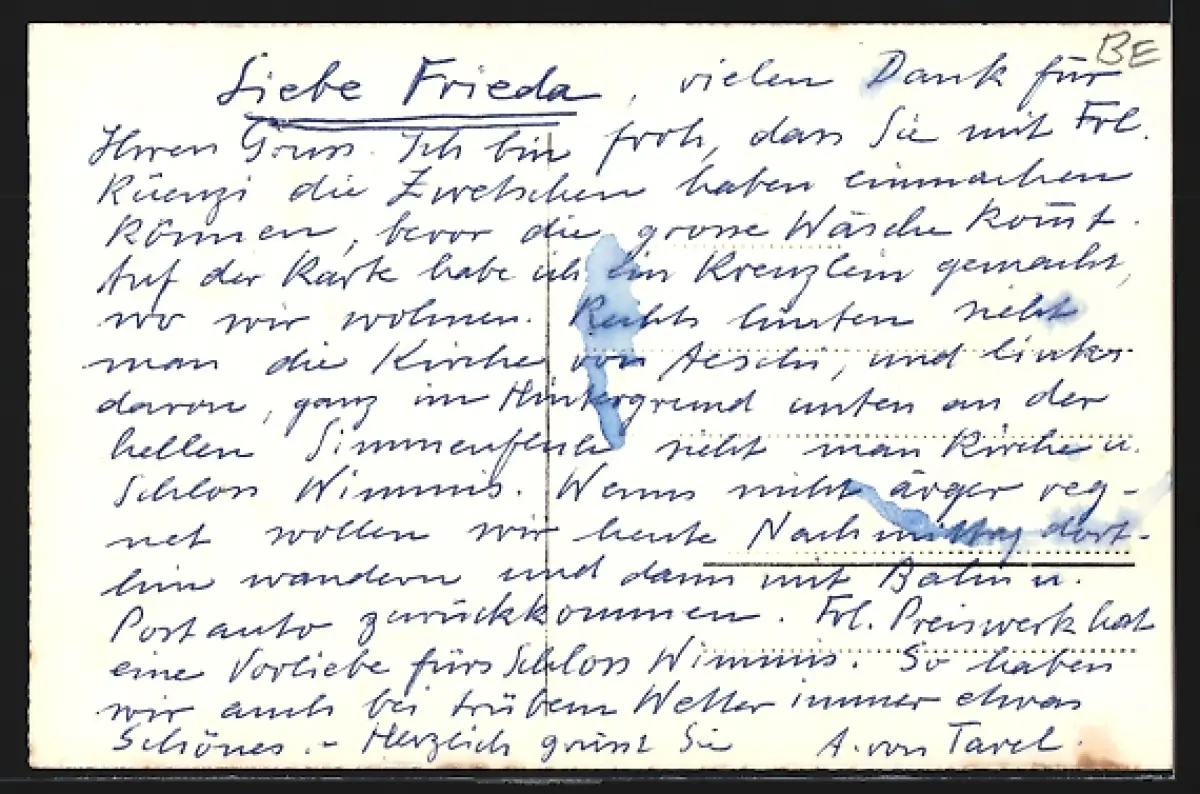 BE
Liebe Frieda, vielen Dank für
Ihren Gruss. Ich bin froh, dass Sie mit Frl.
Küenzi die Zwetschen haben einmachen
können, bevor die grosse Wäsche kom̄t.
Auf der Karte habe ich ein Kreuzlein gemacht,
wo wir wohnen. Rechts hinten sieht
man die Kirche von Aeschi, und links
davon, ganz im Hintergrund unten an der
hellen Simmenfluh sieht man Kirche u.
Schloss Wimmis. Wenns nicht ärger reg-
net wollen wir heute Nachmittag dort-
hin wandern und dann mit Bahn u.
Postauto zurückkommen. Frl. Preiswerk hat
eine Vorliebe fürs Schloss Wimmis. So haben
wir auch bei trübem Wetter immer etwas
Schönes. - Herzlich grüsst Sie A. von Tavel.